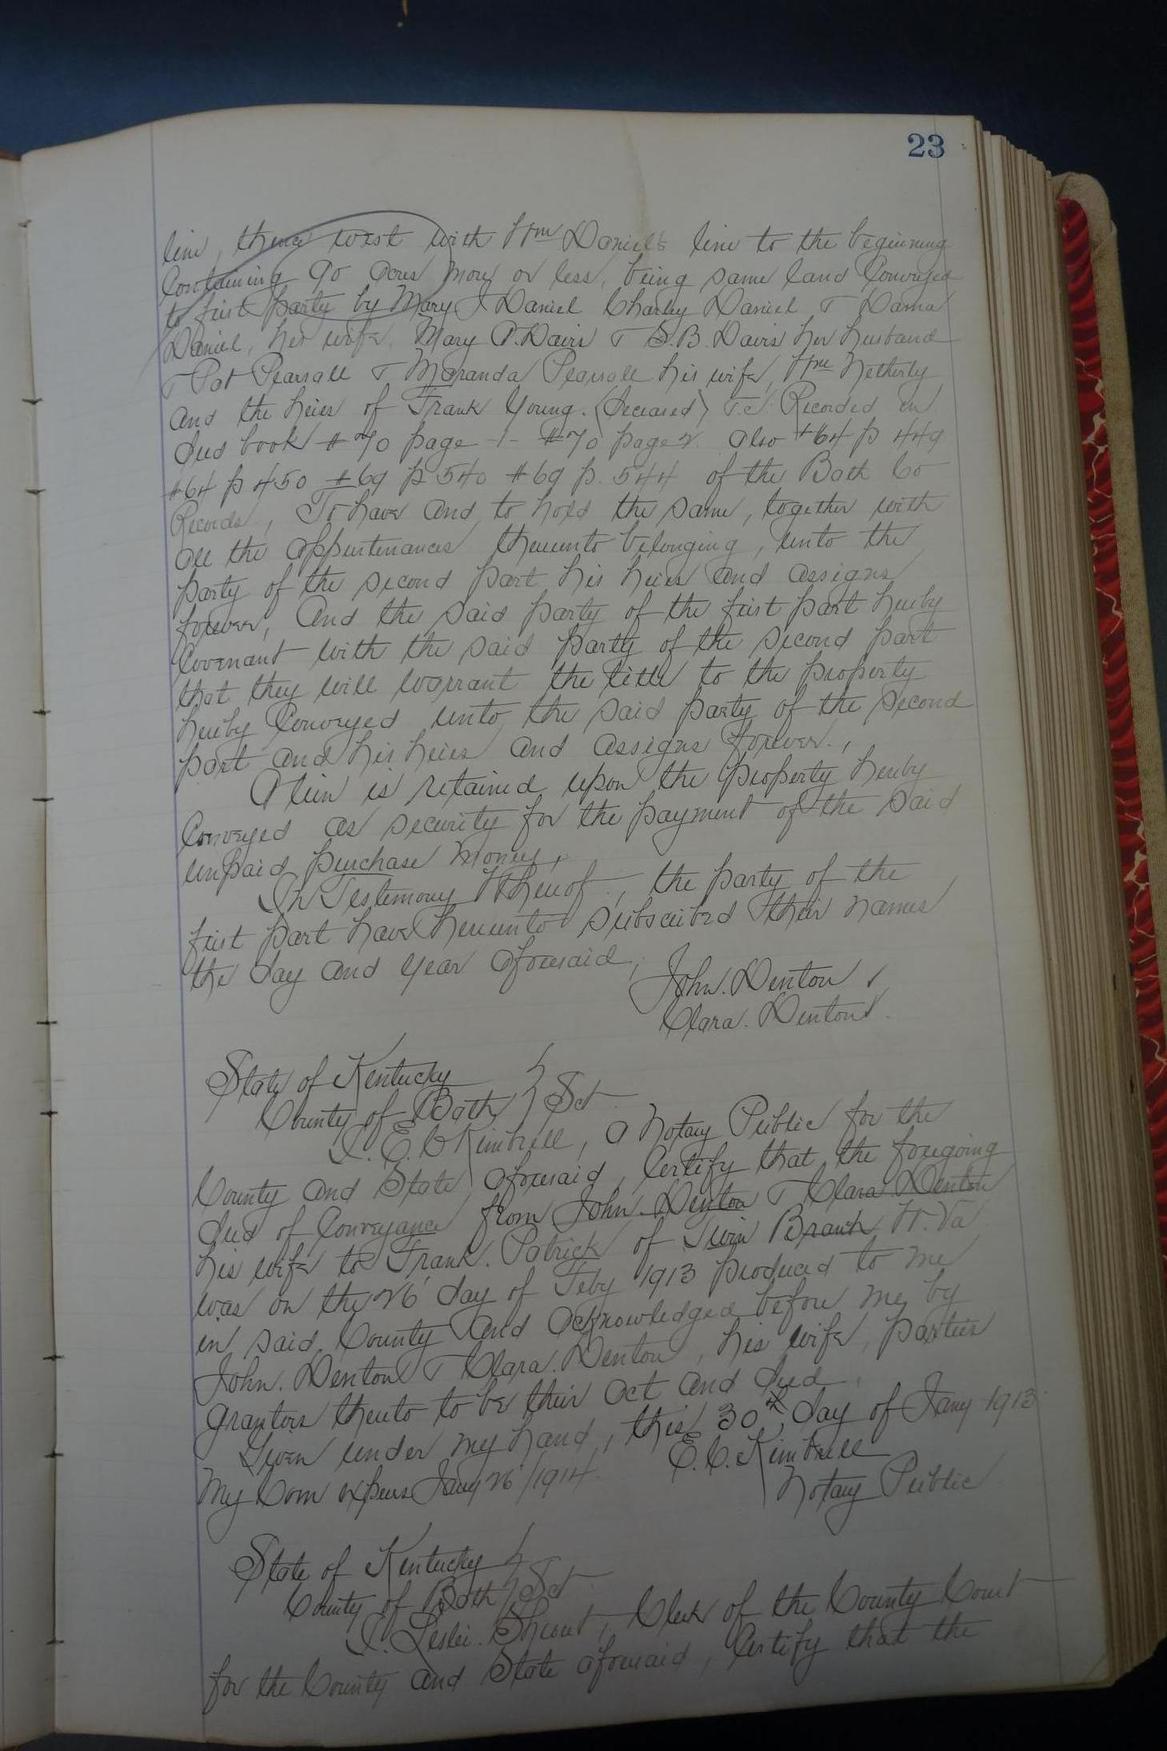 23
line, thence west with Wm Daniels line to the beginning
Containing 90 acres, more or less, being same land Conveyed
to first party by Mary J Daniel Charley Daniel & Dama
Daniel, her wife, Mary P. Davis & S. B. Davis her husband
& Pat Pearsall & Maranda Pearsall his wife, Wm Netherly
and the heirs of Frank Young. (Deceased) Recorded in
deed book #70 page 1- #70 page 2. also #64 p 449
#64 p 450 #69 p 540 #69 p. 544 of the Bath Co
Records, To have and to hold the same, together with
all the appurtenances thereunto belonging, unto the
party of the second part his heirs and assigns
forever, And the said party of the first part hereby
Covenant with the said party of the second part
that they will warrant the title to the property
hereby Conveyed unto the said party of the second
part and his heirs and assigns forever.,
A lien is retained upon the property hereby
Conveyed as security for the payment of the said
unpaid purchase money,
In Testimony Whereof, the party of the
first part have hereunto subscribed their names
the day and year aforesaid,
John. Denton
Clara. Denton.
State of Kentucky
County of Bath } Sct
I. E. C. Kimbrell, a Notary Public for the
County and State aforesaid, Certify that the foregoing
deed of Conveyance from John. Denton & Clara Denton
his wife to Frank. Patrick of Twin Branch W. Va
was on the 26 day of Feby 1913 produced to me
in said County and acknowledged before me by
John. Denton & Clara. Denton, his wife, parties
grantors thereto to be their act and deed.
Given under my hand, this 30th day of Jany 1913
E. C. Kimbrell
My Com expires Jany 26/1914
Notary Public
State of Kentucky
County of Bath } Sct
I. Leslie. Shrout, Clerk of the County Court
for the County and State aforesaid, Certify that the